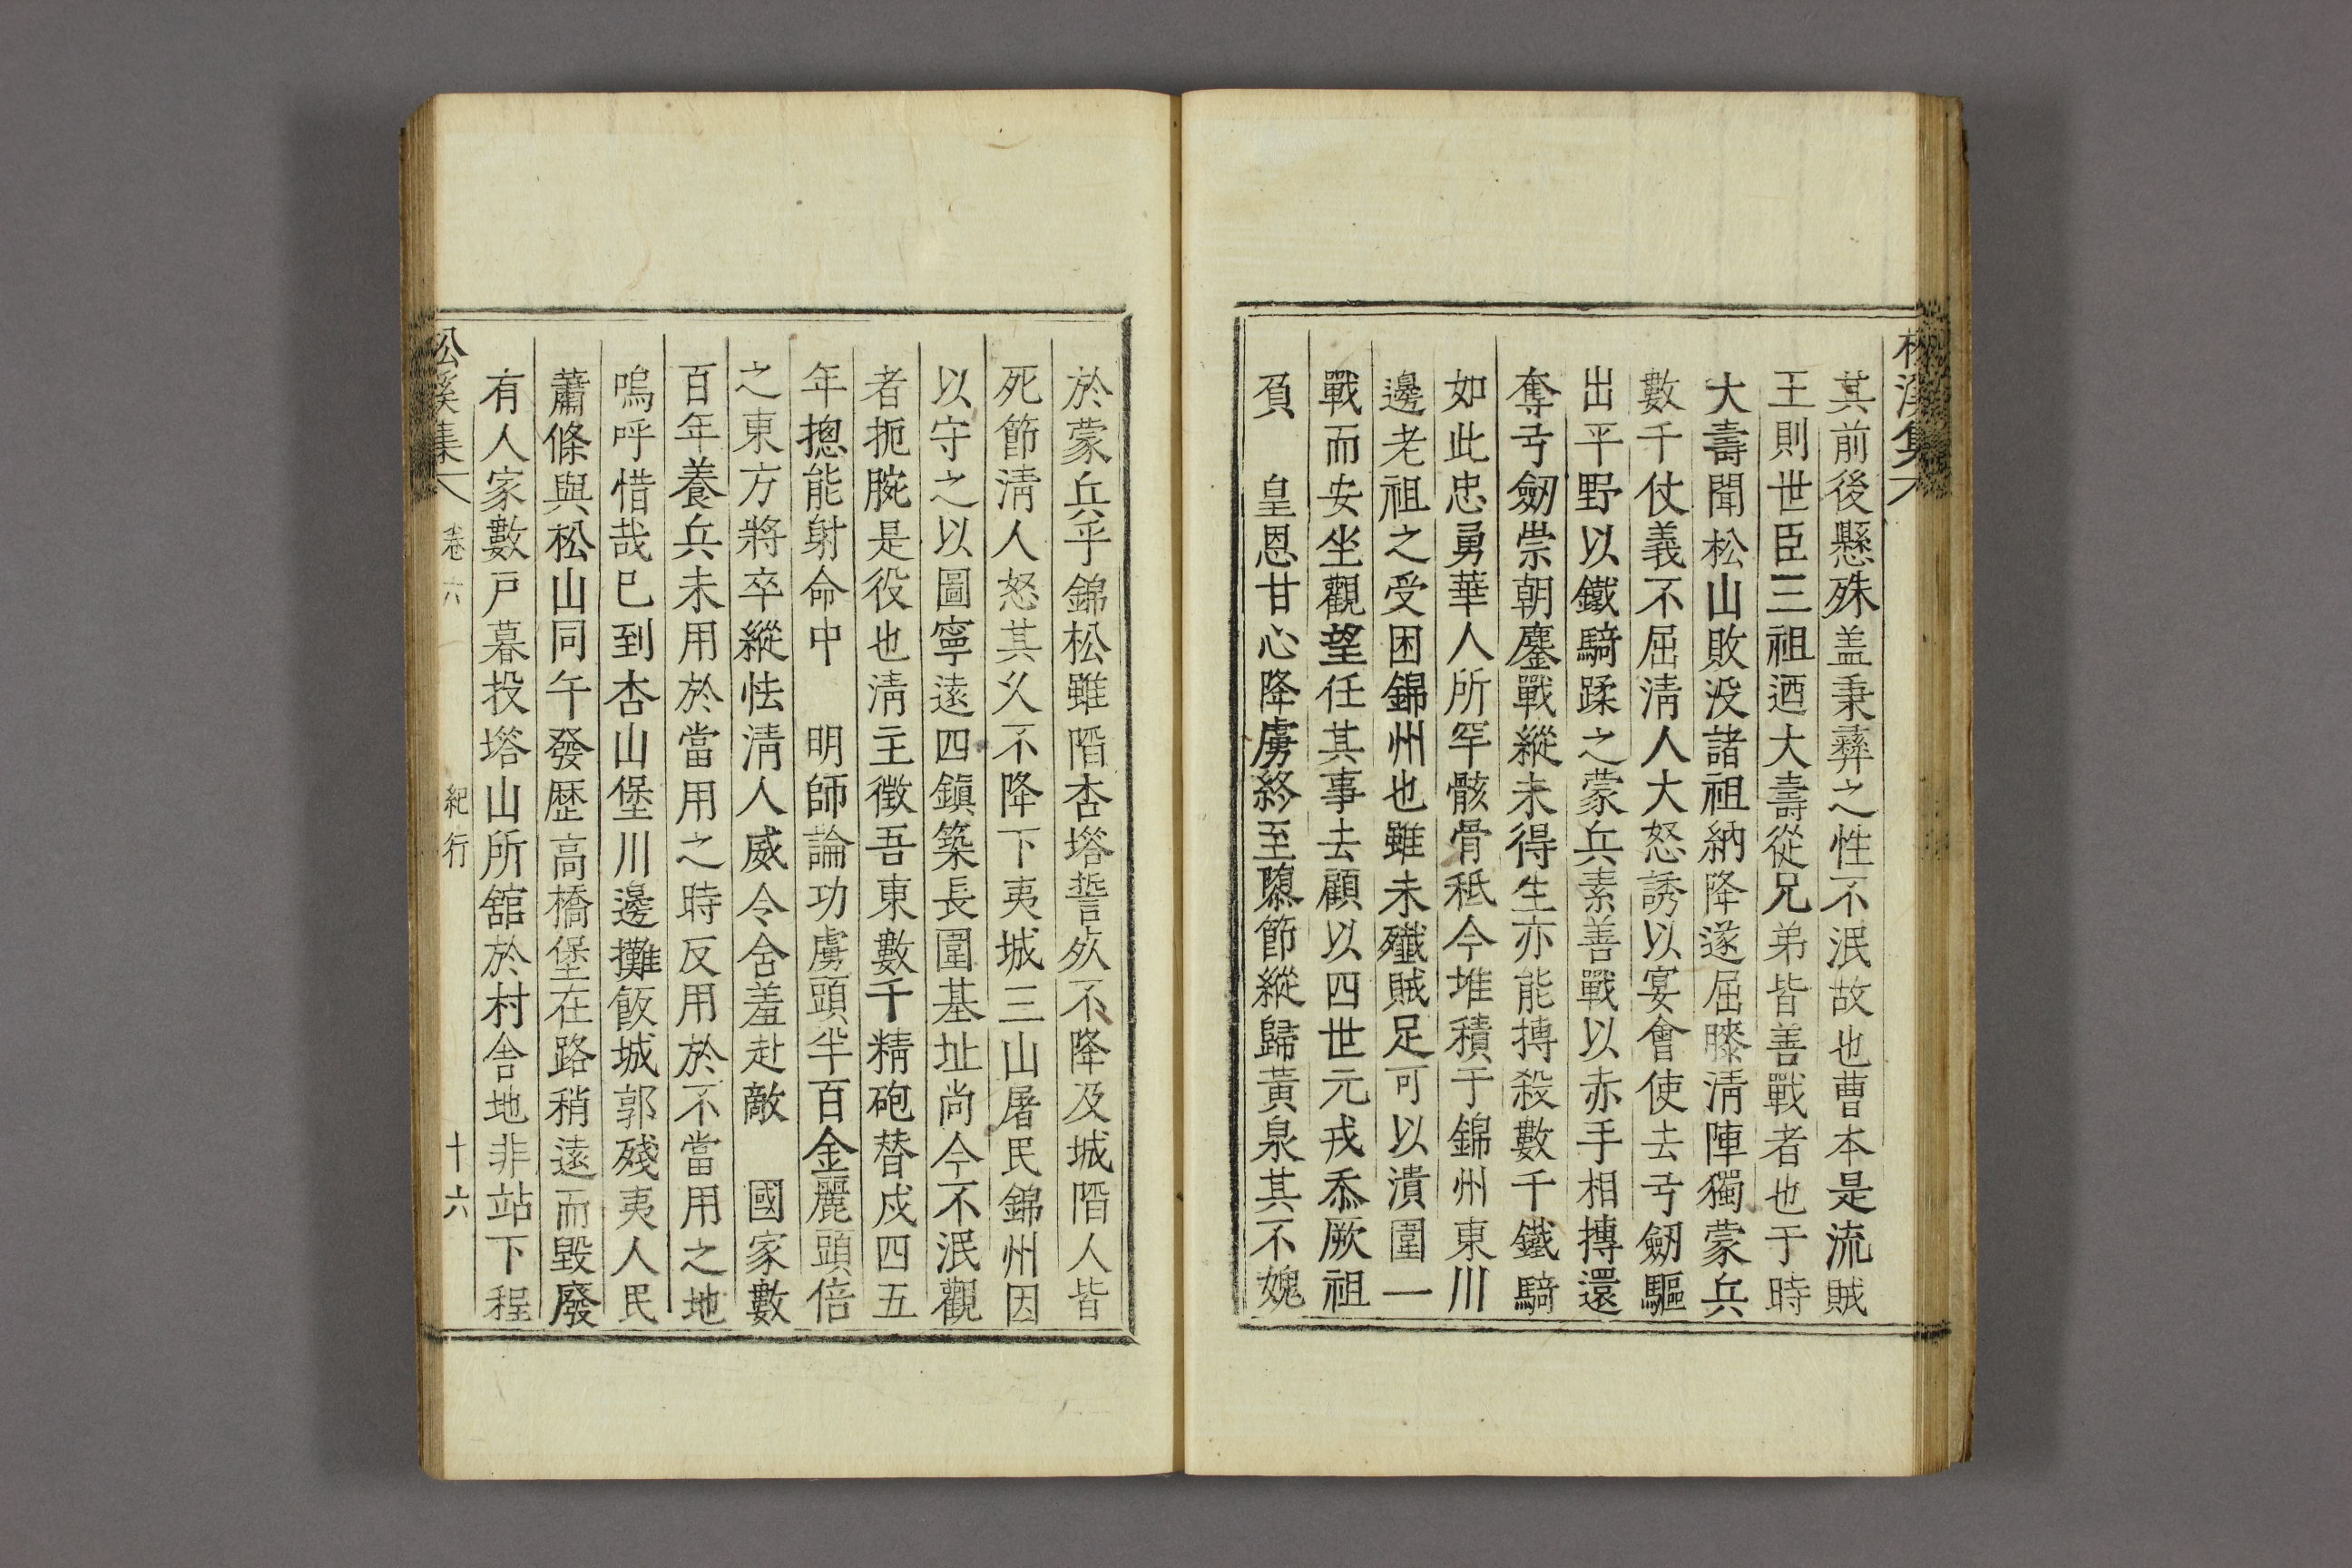 松溪集六
其前後懸殊盖秉彝之性不泯故也曹本是流賊
王則世臣三祖迺大壽從兄弟皆善戰者也于時
大壽聞松山敗没諸祖納降遂屈膝淸陣獨蒙兵
數千仗義不屈淸人大怒誘以宴會使去弓劒驅
出平野以鐵騎蹂之蒙兵素善戰以赤手相搏還
奪弓劒崇朝鏖戰縱未得生亦能搏殺數千鐵騎
如此忠勇華人所罕骸骨秪今堆積于錦州東川
邊老祖之受困錦州也雖未殱賊足可以潰圍一
戰而安坐觀望任其事去顧以四世元戎忝厥祖
負　皇恩甘心降虜終至隳節縱歸黃泉其不媿
於蒙兵乎錦松雖陷杏塔誓死不降及城陷人皆
死節淸人怒其久不降下夷城三山屠民錦州因
以守之以圖寧遠四鎭築長圍基址尙今不泯觀
者扼腕是役也淸主徵吾東數千精砲替戍四五
年摠能射命中　明師論功虜頭半百金麗頭倍
之東方將卒縱怯淸人威令含羞赴敵　國家數
百年養兵未用於當用之時反用於不當用之地
嗚呼惜哉已到杏山堡川邊攤飯城郭殘夷人民
蕭條與松山同午發歷高橋堡在路稍遠而毀廢
有人家數戶暮投塔山所舘於村舍地非站下程
松溪集 卷六 紀行 十六